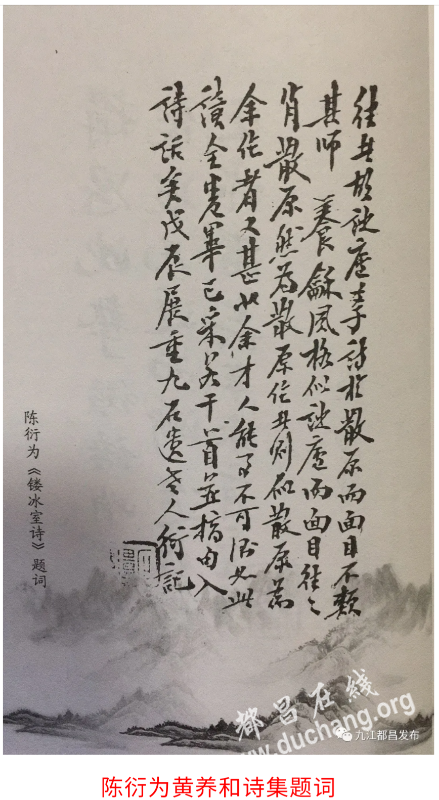 往者胡詩廬學詩於散原而面目不類
其師 養龢風格似詩廬而面目往〻
肖散原然為散原作者則似散原為
余作者又甚似余才人能事不可測如此
讀全卷畢已采若干首並摘句入
詩話矣戊辰展重九石遺老人衍記
陈衍为《镂冰室诗》题词
都昌在线
www.duchang.org
九江都昌发布
陈衍为黄养和诗集题词